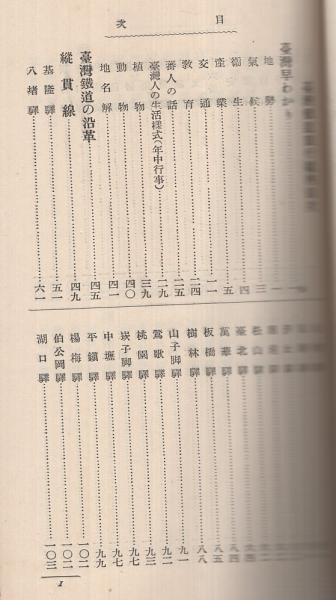 目次
臺灣早わかり
地勢
氣候……三
衞生……四
產業……五
交通……一一
敎育……二四
蕃人の話……二五
臺灣人の生活樣式(年中行事)……二九
植物……三九
動物……四〇
地名解……四一
臺灣鐵道の沿革……四五
縱貫線……四九
基隆驛……五一
八堵驛……六一
松山驛
臺北驛
萬華驛……八四
板橋驛……八五
樹林驛……八八
山子脚驛……九一
鶯歌驛……九二
桃園驛……九三
崁子脚驛……九七
中壢驛……九七
平鎭驛……九九
楊梅驛……一〇一
伯公岡驛……一〇二
湖口驛……一〇三
1